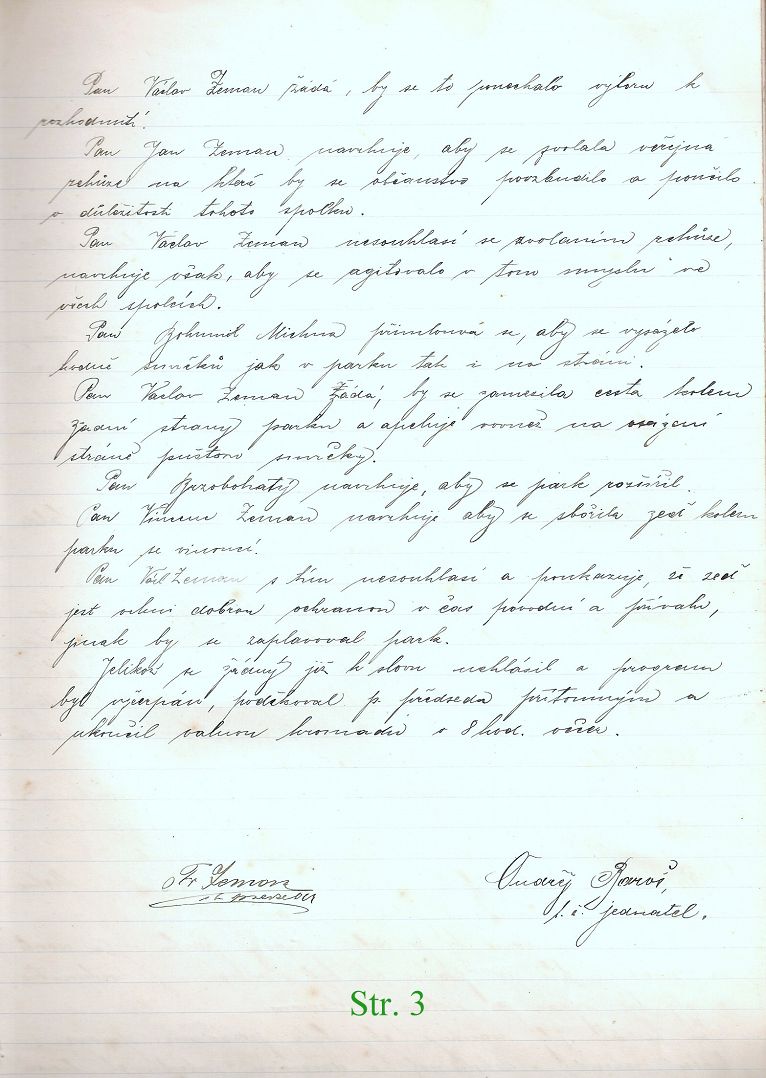 Pan Václav Zeman žádá, by se to ponechalo výboru k
rozhodnutí.
Pan Jan Zeman navrhuje, aby se svolala veřejná
schůze na které by se občanstvo povzbudilo a poučilo
o důležitosti tohoto spolku.
Pan Václav Zeman nesouhlasí se svolaním schůze,
navrhuje však, aby se agitovalo v tom smyslu ve
všech spolcích.
Pan Bohumil Michna přimlouvá se, aby se vysázelo
hodně smrčků jak v parku tak i na stráni.
Pan Václav Zeman žádá, by se zamezila cesta kolem
zadní strany parku a apeluje rovněž na osázení
stráně pustou smrčky.
Pan Brzobohatý navrhuje, aby se park rozšířil.
Pan Zeman navrhuje aby se sbořila zeď kolem
parku se vinoucí.
Pan Zeman s tím nesouhlasí a poukazuje, že zeď
jest velmi dobrou ochranou v čas povodní a přívalu,
jinak by se zaplavoval park.
Jelikož se žádný již k slovu nehlásil a program
byl vyčerpán, poděkoval p. předseda přítomným a
ukončil valnou hromadu o 8 hod. večer.
Fr. Zeman
Ondřej Baroš,
t. č. jednatel.
Str. 3